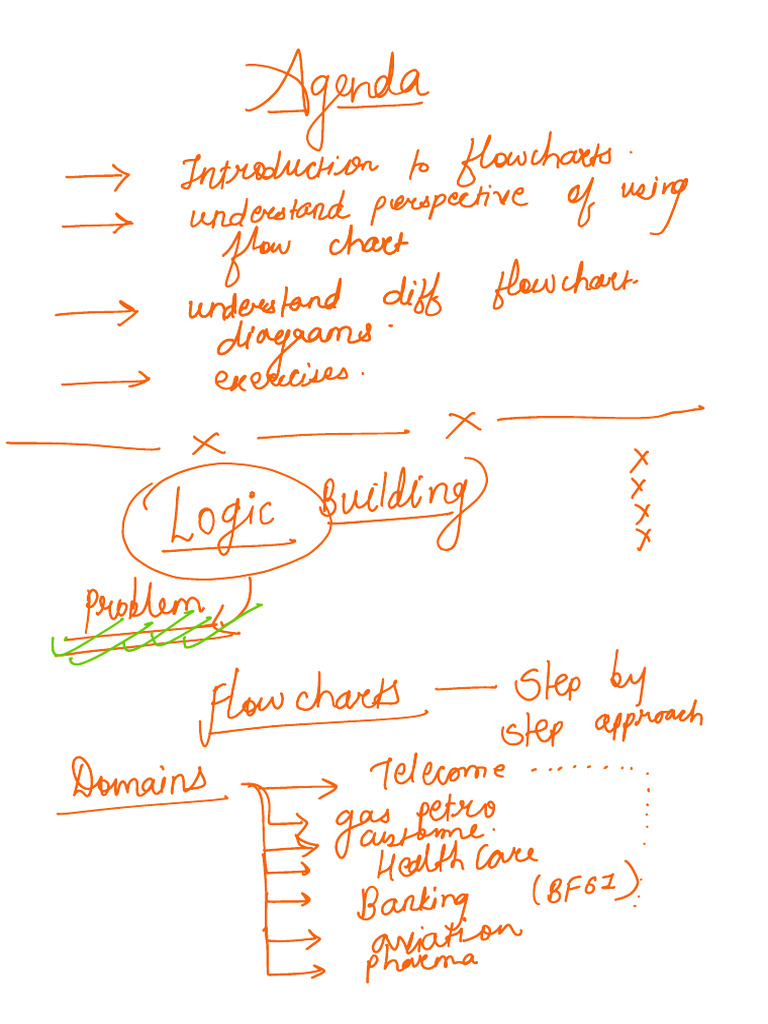 Agenda
→ Introduction to flowcharts.
→ understand perspective of using
flow chart
→ understand diff flowchart.
diagrams.
→ exercises.
x x
(Logic Building)
x
x
x
x
Problem
Flow charts — Step by
step approach
Domains → Telecome ........
gas petro
custome.
Health Care
Banking (BFSI)
aviation
pharma